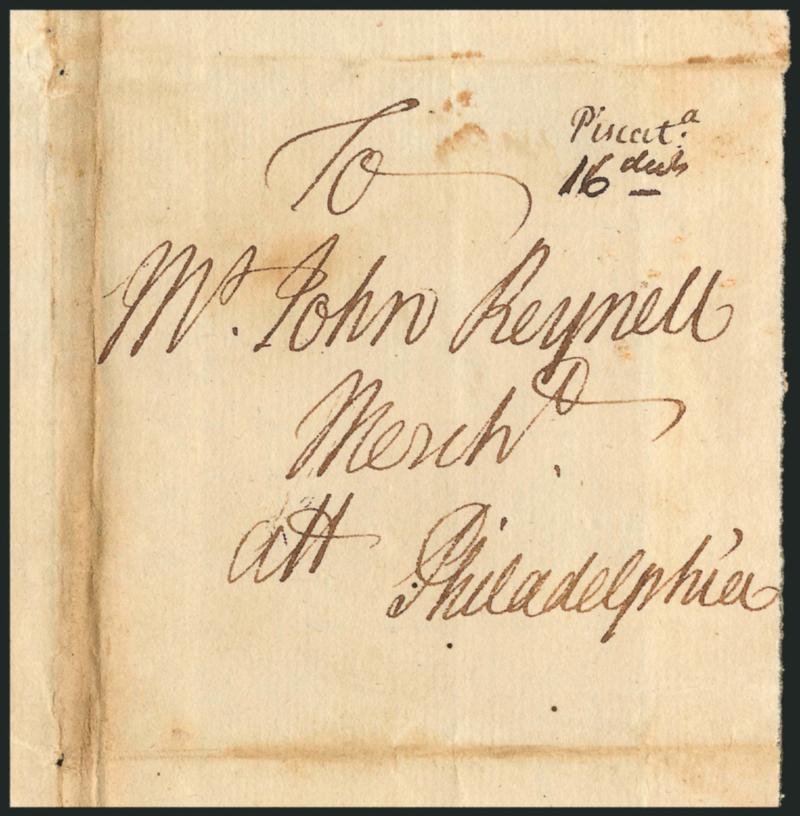 To
Piscat.ª
16 dwts
Mr. John Reynell
Mercht.
att Philadelphia